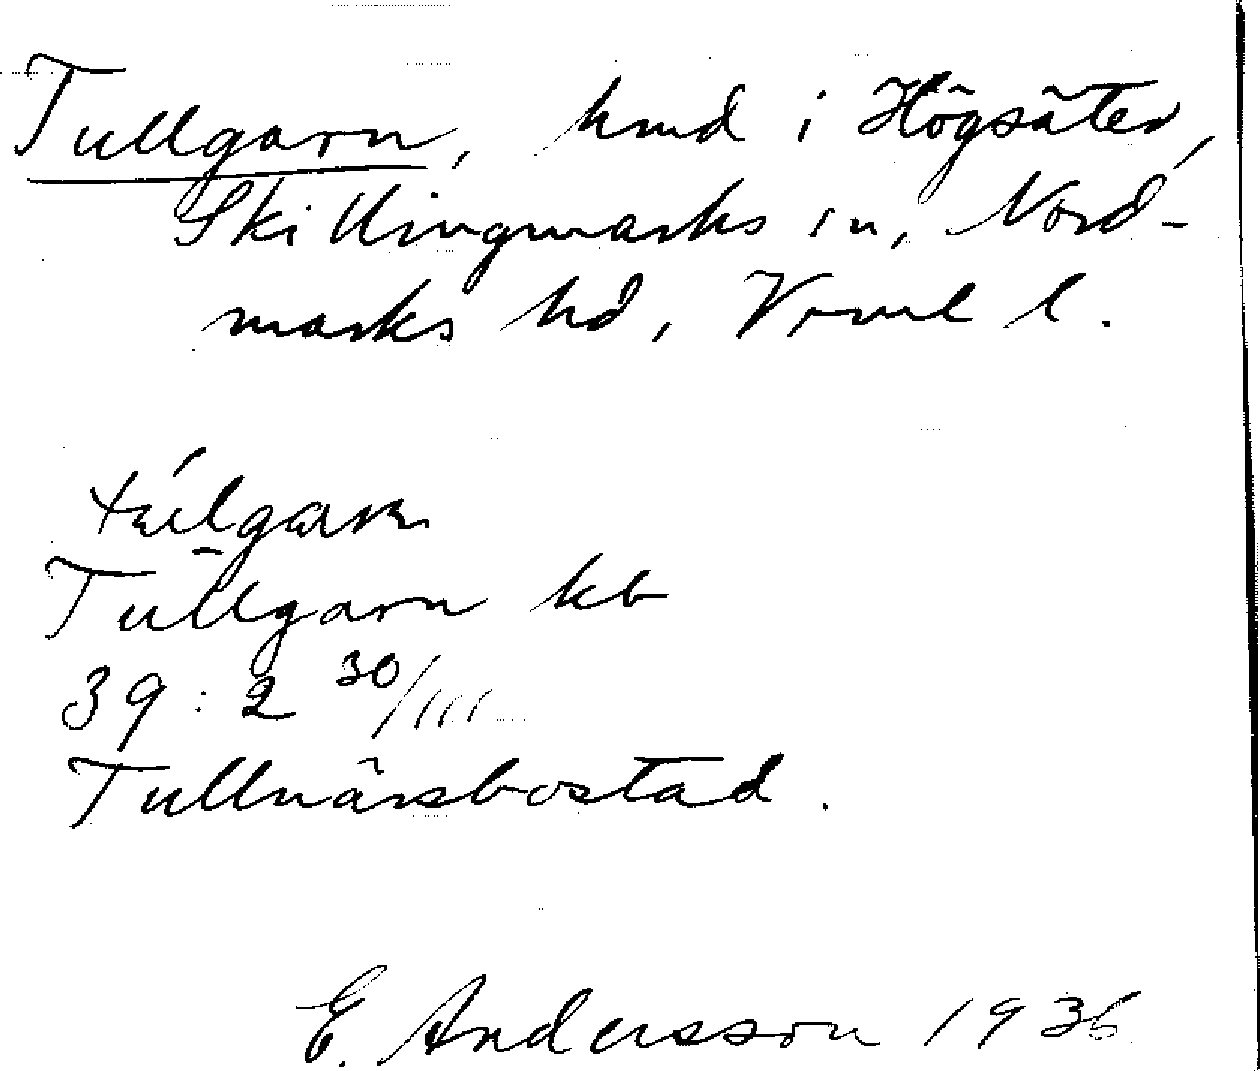 Tullgarn, hmd i Högsäter,
Skillingmarks sn, Nord-
marks hd, Vrml l.
Tullgarn kb
39:2 30/
Tullnärsbostad.
E. Andersson 1936